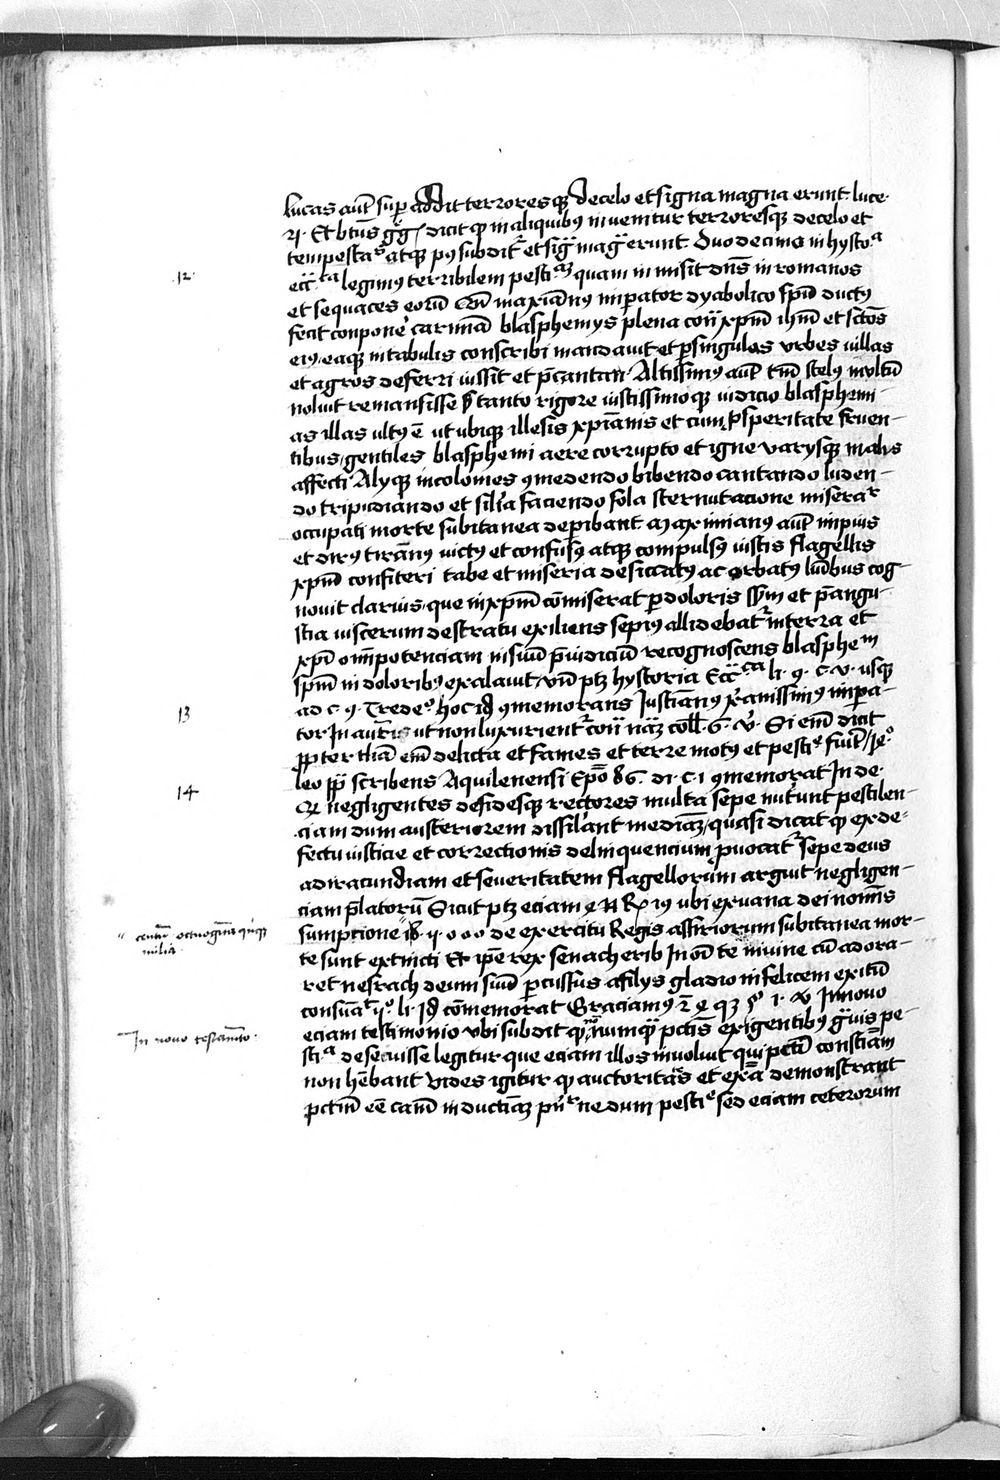 lucas aut̄ sup addit terroresq; de celo et signa magna erunt luce
21· Et btūs gg̃ dicit ꝙ in aliquibꝰ invenitur terroresq; de celo et
tempestaˢ atq; pꝰ subditʳ et sig̃ mag̃ erunt Duodecimo in hystoᵃ
12· ecc̄ᶜᵃ legimus terribilem pestiᵃᵐ quam in misit dn̄s in romanos
et sequaces eorū cū maxiānus imperator dyabolico spū ductꝰ
fecit conponeʼ carminā blasphemys plena con̄ xpm̄ ihm̄ et sctōs
eiꝰ eaq; in tabulis conscribi mandavit et ꝑ singulas urbes villas
et agros deferri iussit et p̄cantari Altissimꝰ aut̄ tm̄ scelꝰ multū
noluit remansisse ſ tanto rigore iustissimoq; iudicio blasphemi-
as illas ultꝰ ē ut ubiq; illesis xp̄ianis et cum ꝓsperitate fruen-
tibus gentiles blasphemi aere corrupto et igne varysq; malis
affecti Alyq; incolomes ꝯmedendo bibendo cantando luden-
do tripudiando et silīa faciendo sola sternutacione miseraʳ
occupati morte subitanea deꝑibant Maximianꝰ aut̄ impius
et dirꝰ tirān̄ꝰ victꝰ et confusꝰ atq; compulsꝰ iustis flagellis
xpm̄ confiteri tabe et miseria desiccatꝰ ac orbatꝰ lūibus cog-
novit clarius que in xpm̄ cōmiserat ꝑ doloris ssim et p̄angu-
stia viscerum de stratu exiliens sepiꝰ allidebatʳ in terra et
xpī om̄potenciam in suū p̄iudiciū recognoscens blasphem
spm̄ in doloribꝰ exalavit vn̄ ptz hystoria Eccᶜᵃ li· 9· c· v· usq;
13 ad c· 9· Tredeᵒ hoc idꝫ ꝯmemorans Justiānꝰ xr̄anissimꝰ impa-
tor In autn̄s ut non luxurientʳ con̄ naꝫ coll· 6· Si em̄ dicit
ꝓpter tham em̄ delicta et fames et terre motꝰ et pestiᵉ fiūt
14 leo pp̄ scribens Aquilenensi Ep̄o 86· di· c· 1 ꝯmemorat In de-
negligentes desidesq; rectores multa sepe nut̄unt pestilen-
ciam dum austeriorem dissil̄ant mediciāꝫ quasi dicat ꝙ ex de-
fectu iusticie et correctionis delinquencium ꝓvocatʳ sepe deus
ad iracundiam et severitatem flagellorum arguit negligen-
ciam p̄latorū Sicut ptz eciam ubi ex vana dei nomīs
" centū octuogīta quīqꝫ milia·
sumptione de exercitu Regis assiriorum subitanea mor-
te sunt extincti Et ip̄e rex senacherib In om̄ te invine cū adora-
ret nesrach deum suū ꝑcussus a filys gladio infelicem exitū
consūat li· Idꝫ cōmemorat Graciamꝰ In novo
In novo testamēto·
eciam testimonio ubi subdit numq̄ pctīs exigentibꝰ gʳvis pe-
stiᵃ desevisse legitur que eciam illos involvit qui pctī consciām
non hēbant Vides igitur ꝙ auctoritaˢ et exā demonstrant
pctm̄ eē cam̄ inductiāꝫ ne dum pestiᵉ sed eciam ceterorum